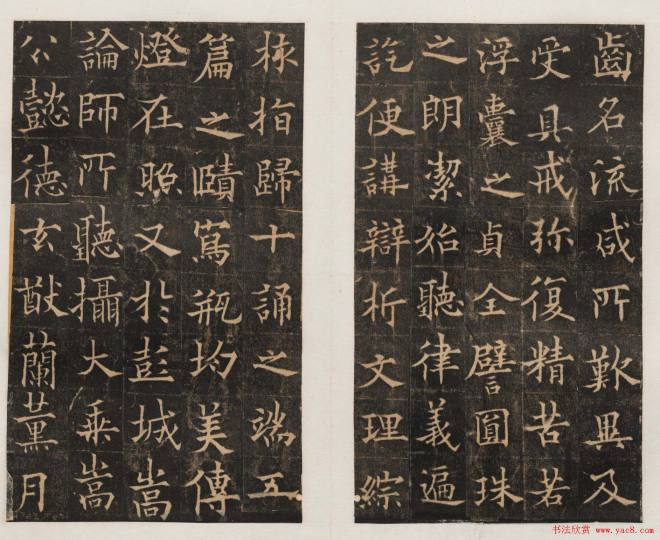 齒名流咸所歎異及
受具戒弥復精苦若
浮囊之貞全譬圓珠
之朗潔始聽律義遍
訖便講辯析文理綜
核指歸十誦之端五
篇之賾寫瓶均美傳
燈在照又於彭城嵩
論師所聽攝大乘嵩
公懿德玄猷蘭薰月
书法欣赏 www.yac8.com